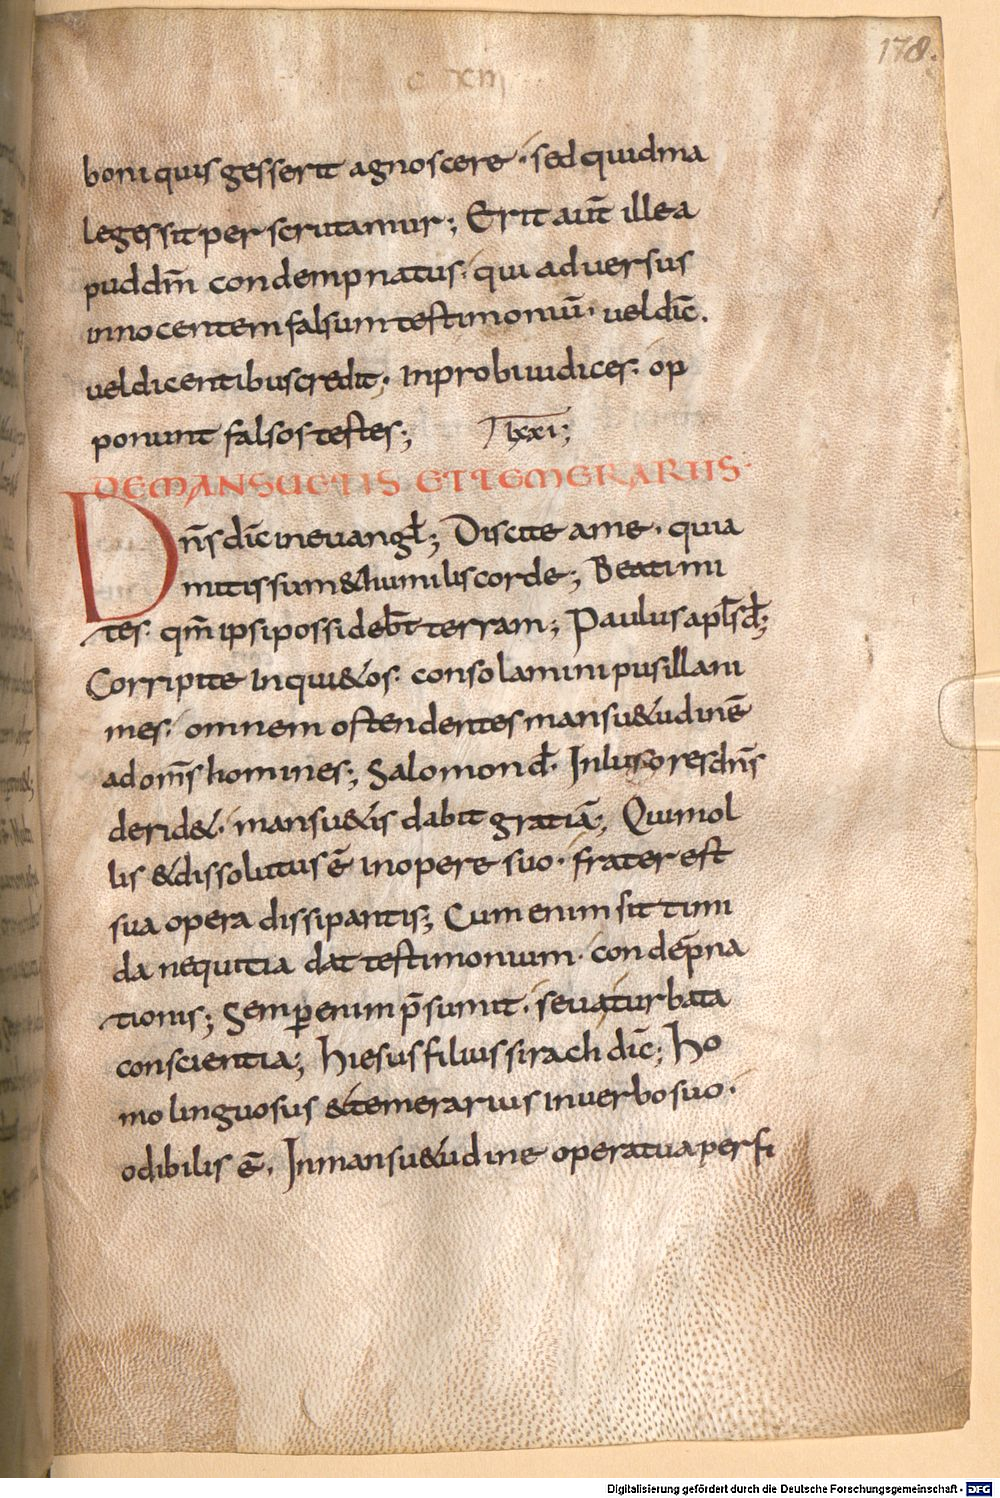 178.
c xiii
boni quis gesserit agnoscere · sed quid ma
le gessit perscrutamur; Erit aut̄ ille a
pud dm̄ condempnatus · qui adversus
innocentem falsum testimoniū · vel dic̄.
vel dicentibus credit; Inprobi iudices · op
ponunt falsos testes; lxxi;
DE MANSUETIS ET TEMERARIIS·
Dn̄s dic̄ in evangł; Discite a me · quia
mitis sum & humilis corde; Beati mi
tes · qm̄ ipsi possideb̄t terram; Paulus apłs đ;
Corripite inqui&os · consolamini pusillani
mes · omnem ostendentes mansu&udinē
ad om̄s homines; Salomon đ· Inlusores dn̄s
derid&· mansu&is dabit gratiā; Qui mol
lis & dissolutus ē in opere suo · frater est
sua opera dissipantis; Cum enim sit timi
da nequitia dat testimonium · condēpna
tionis; Semp̄ enim p̄sumit · seva turbata
conscientia; hiesus filius sirach dic̄; ho
mo linguosus & temerarius in verbo suo ·
odibilis ē. In mansu&udine opera tua perfi
Digitalisierung gefördert durch die Deutsche Forschungsgemeinschaft - DFG